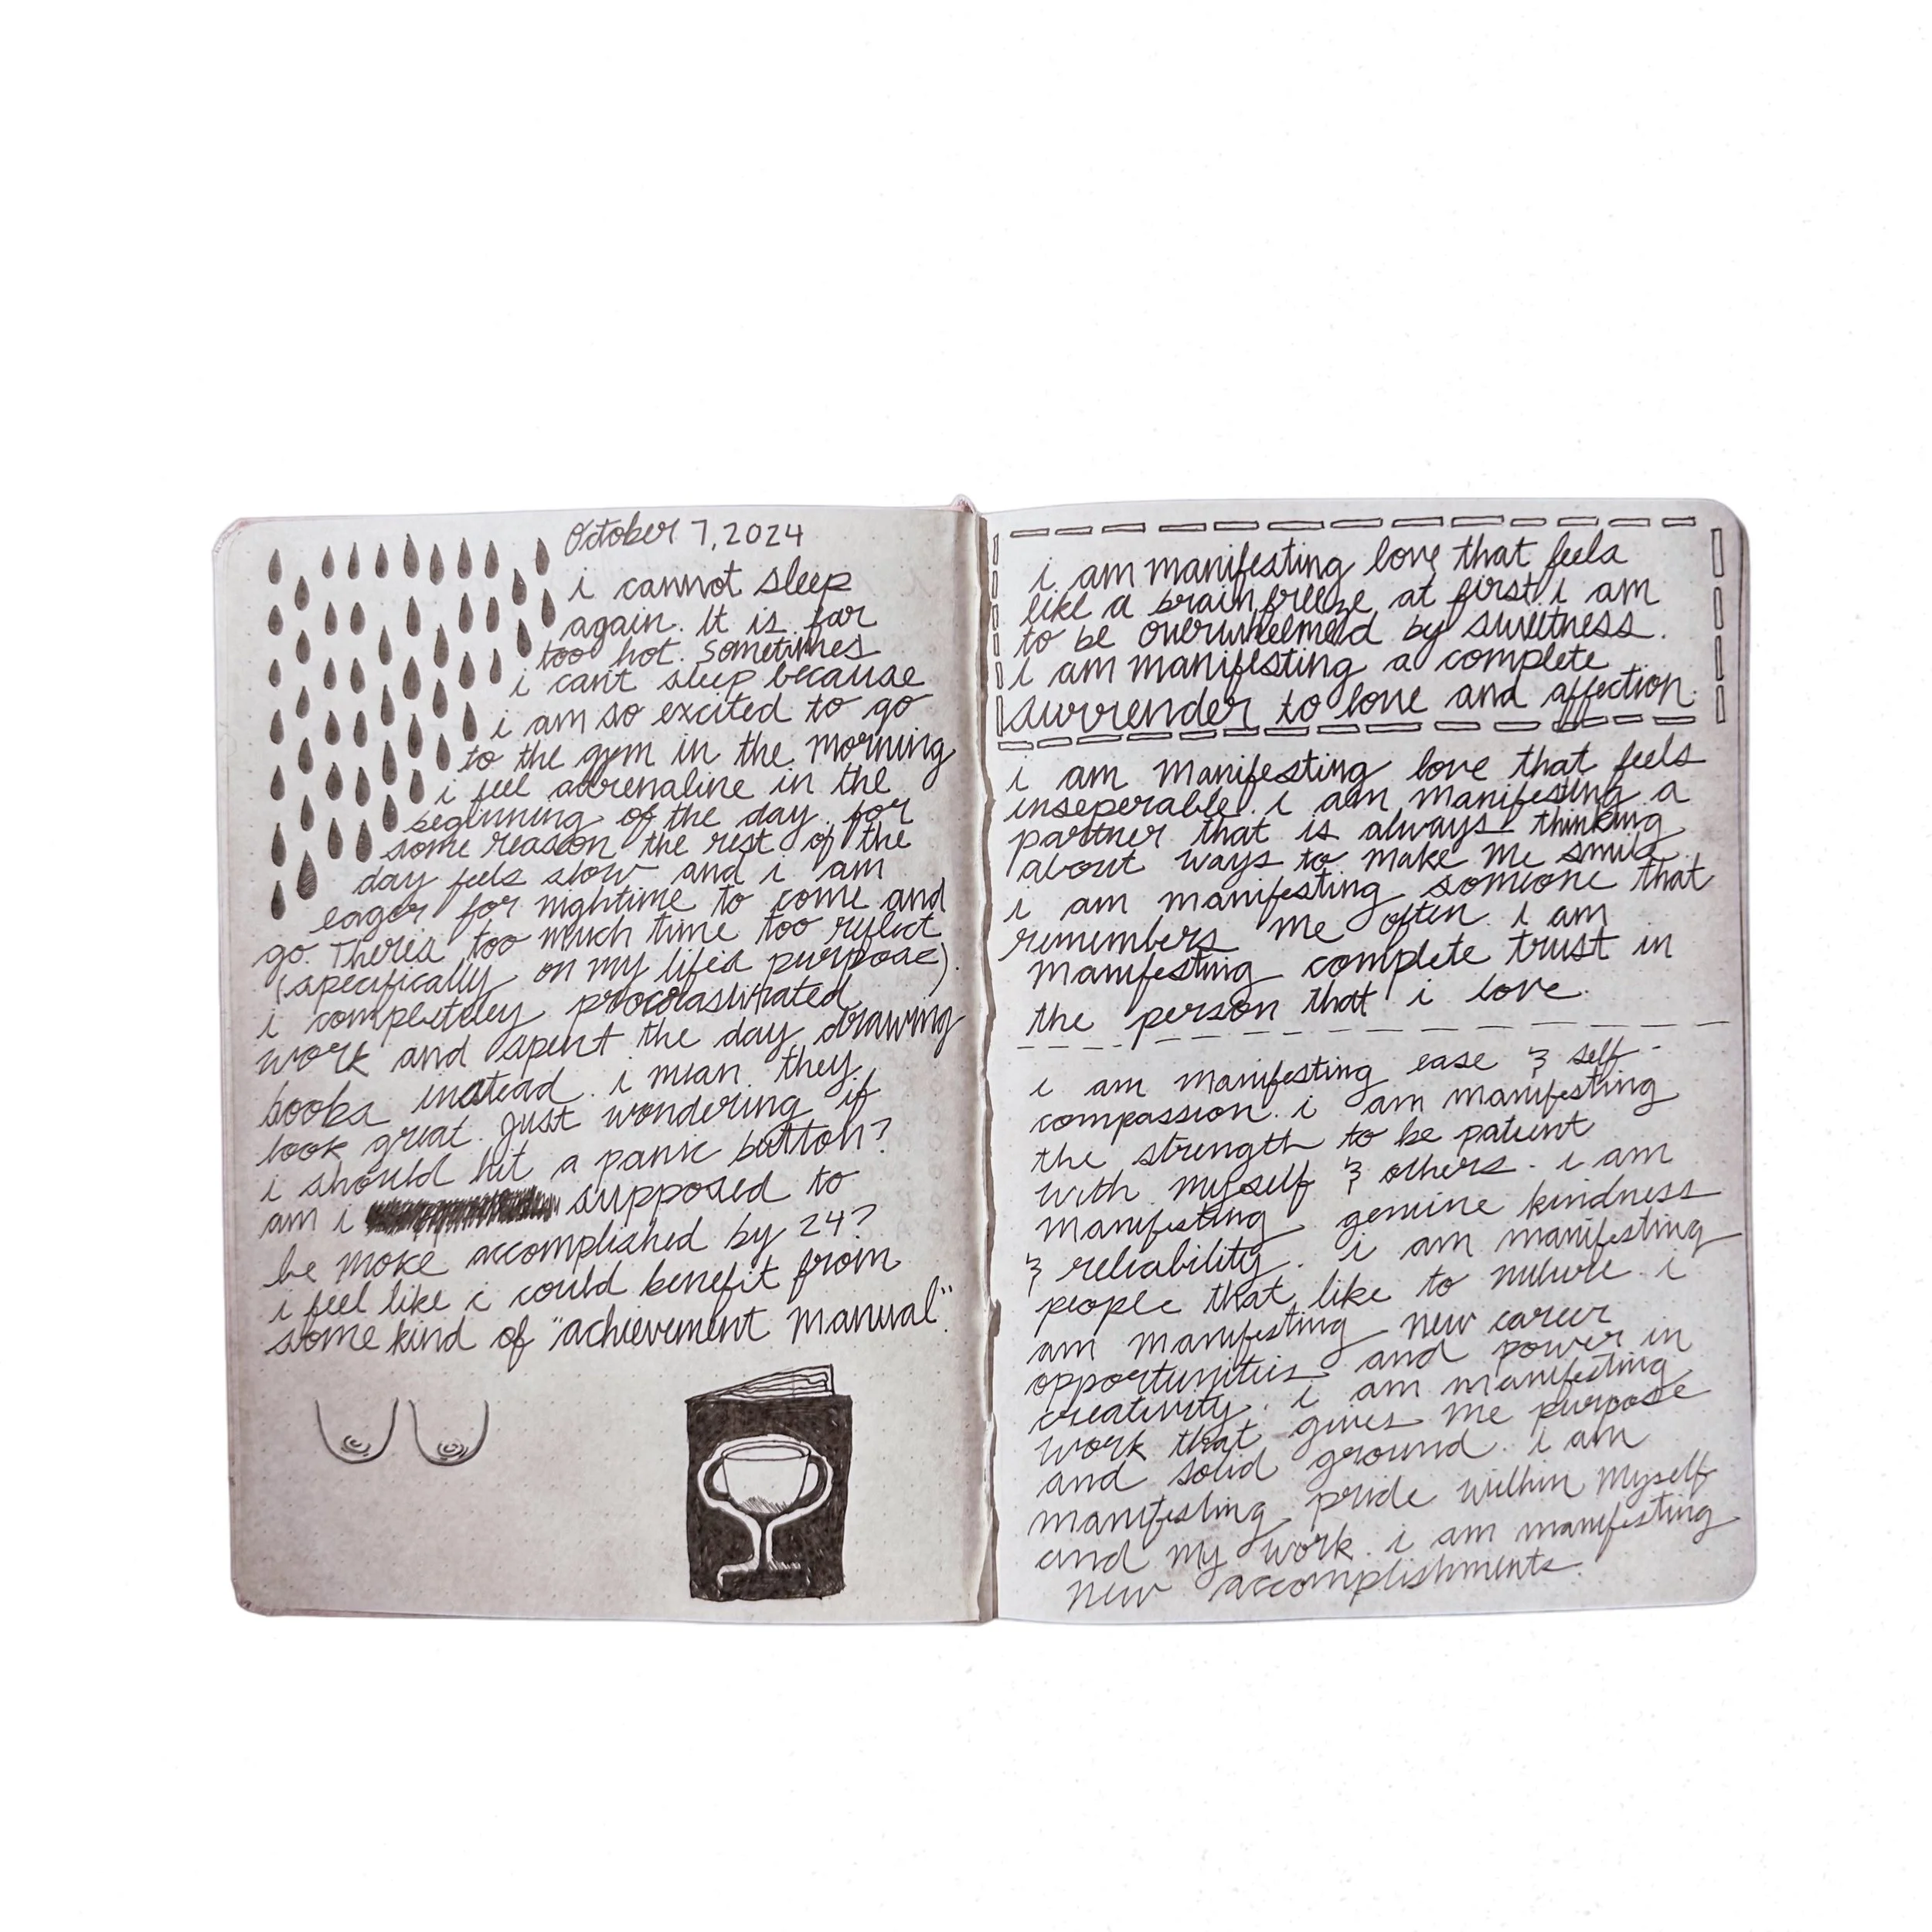 October 7, 2024
i cannot sleep
again. It is far
too hot. Sometimes
i can't sleep because
i am so excited to go
to the gym in the morning
i feel adrenaline in the
beginning of the day. for
some reason the rest of the
day feels slow and i am
eager for nightime to come and
go. There's too much time too reflect
(specifically on my life's purpose).
i completeley procrastinated
work and spent the day drawing
boobs instead. i mean they
look great. Just wondering if
i should hit a panic button?
am i supposed to
be more accomplished by 24?
i feel like i could benefit from
some kind of "achievement manual".
i am manifesting love that feels
like a brain freeze at first. i am
to be overwhelmed by sweetness.
i am manifesting a complete
surrender to love and affection.
i am manifesting love that feels
inseperable. i am manifesting a
partner that is always thinking
about ways to make me smile.
i am manifesting someone that
remembers me often. i am
manifesting complete trust in
the person that i love.
i am manifesting ease & self-
compassion. i am manifesting
the strength to be patient
with myself & others. i am
manifesting genuine kindness
& reliability. i am manifesting
people that like to nurture. i
am manifesting new career
opportunities and power in
creativity. i am manifesting
work that gives me purpose
and solid ground. i am
manifesting pride within myself
and my work. i am manifesting
new accomplishments.